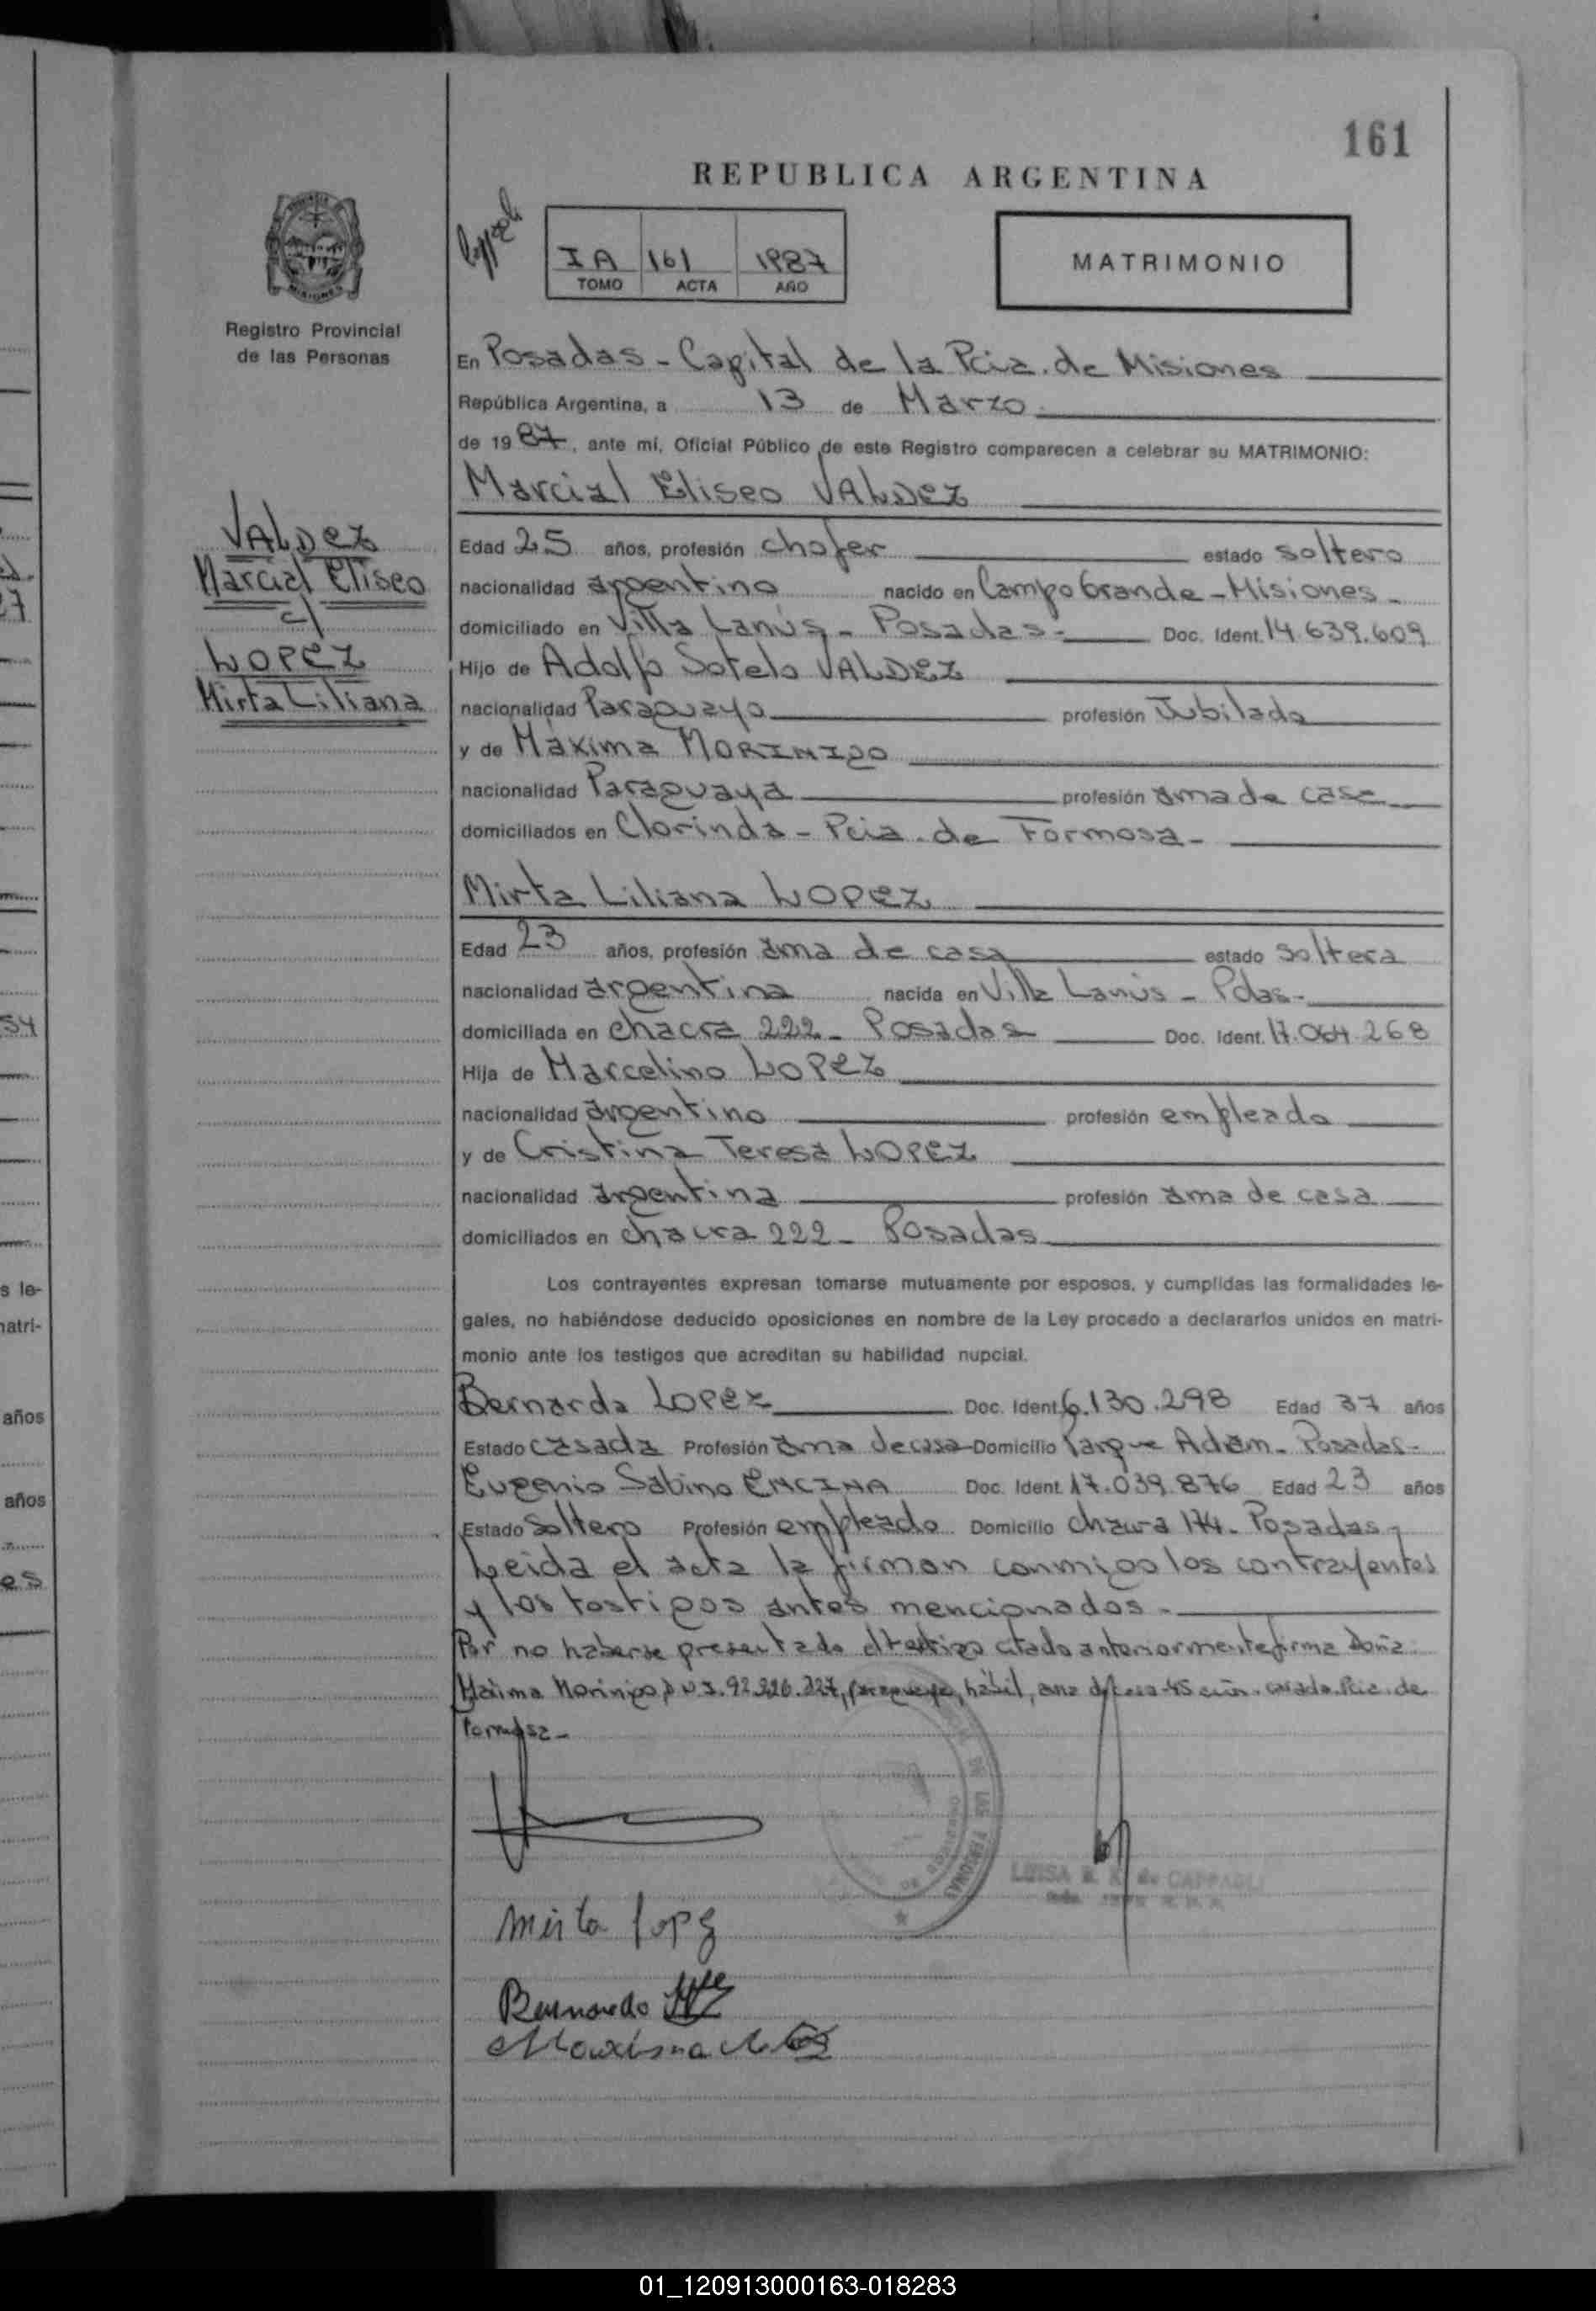 161
REPUBLICA ARGENTINA
I A 161 1987
TOMO ACTA AÑO
MATRIMONIO
MISIONES
Registro Provincial
de las Personas
En Posadas - Capital de la Pcia. de Misiones
República Argentina, a 13 de Marzo
de 1987, ante mí, Oficial Público de este Registro comparecen a celebrar su MATRIMONIO:
Marcial Eliseo VALDEZ
VALDEZ
Marcial Eliseo
c/
LOPEZ
Mirta Liliana
Edad 25 años, profesión chofer estado soltero
nacionalidad argentino nacido en Campo Grande - Misiones -
domiciliado en Villa Lanús - Posadas - Doc. Ident. 14.639.609
Hijo de Adolfo Sotelo VALDEZ
nacionalidad Paraguayo profesión Jubilado
y de Máxima MORINIGO
nacionalidad Paraguaya profesión ama de casa
domiciliados en Clorinda - Pcia. de Formosa -
Mirta Liliana LOPEZ
Edad 23 años, profesión ama de casa estado soltera
nacionalidad argentina nacida en Villa Lanús - Pdas -
domiciliada en chacra 222 - Posadas Doc. Ident. 17.064.268
Hija de Marcelino LOPEZ
nacionalidad argentino profesión empleado
y de Cristina Teresa LOPEZ
nacionalidad argentina profesión ama de casa
domiciliados en chacra 222 - Posadas
Los contrayentes expresan tomarse mutuamente por esposos, y cumplidas las formalidades le-
gales, no habiéndose deducido oposiciones en nombre de la Ley procedo a declararlos unidos en matri-
monio ante los testigos que acreditan su habilidad nupcial.
Bernarda LOPEZ Doc. Ident. 6.130.298 Edad 37 años
Estado casada Profesión ama de casa Domicilio Parque Adam - Posadas -
Eugenio Sabino ENCINA Doc. Ident. 17.039.876 Edad 23 años
Estado soltero Profesión empleado Domicilio chacra 174 - Posadas -
Leida el acta la firman conmigo los contrayentes
y los testigos antes mencionados -
Por no haberse presentado el testigo citado anteriormente firma Doña
Máxima Morinigo, D N I. 92.326.227, paraguaya, hábil, ama de casa - 45 años - casada. Pcia. de
Formosa -
LUISA de CAPPAGLI
DE LAS PERSONAS
Mirta Lopez
Bernarda
Maxima
54
27
es
s le-
natri-
años
años
01_120913000163-018283